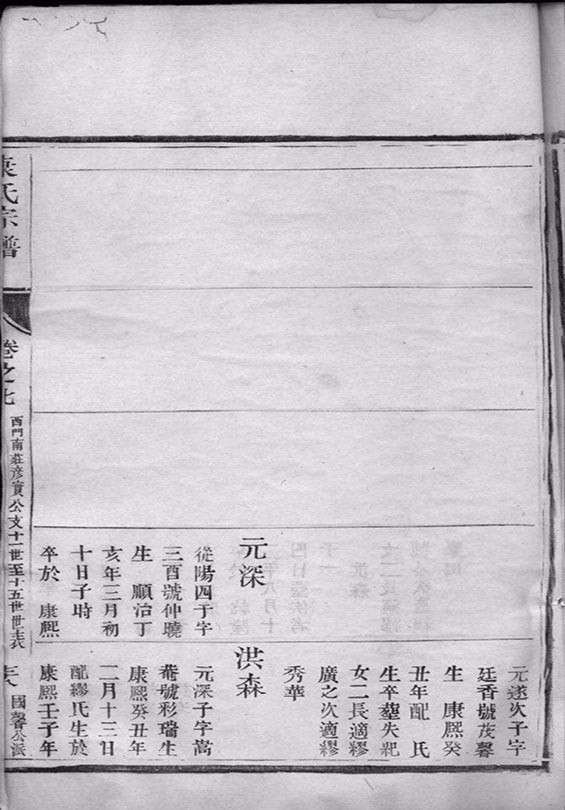 元遂次子字
廷香號茂馨
生　康熙癸
丑年配　氏
生卒塟失紀
女二長適繆
廣之次適繆
秀華
元深
從陽四子字
三酉號仲曉
生　順治丁
亥年三月初
十日子時
卒於　康熙
洪森
元深子字嵩
菴號彩璠生
康熙癸丑年
二月十三日
配繆氏生於
康熙壬子年
氏宗譜
卷之七
西門南莊彥實公支十一世至十五世世表
國馨公派